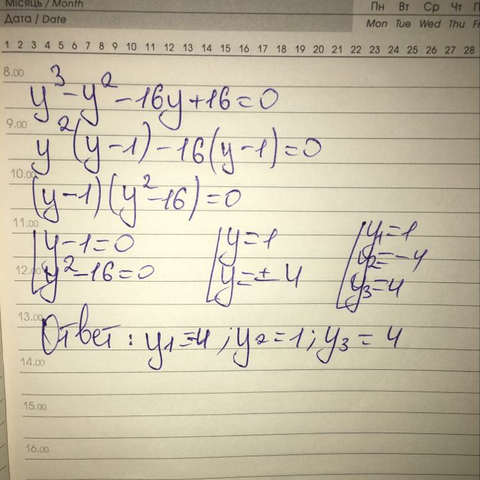 Місяць / Month
Дата / Date
Пн Вт Ср Чт П
Mon Tue Wed Thu Fri
1 2 3 4 5 6 7 8 9 10 11 12 13 14 15 16 17 18 19 20 21 22 23 24 25 26 27 28
8.00
y³-y²-16y+16=0
9.00
y²(y-1)-16(y-1)=0
10.00
(y-1)(y²-16)=0
11.00
[y-1=0 [y=1 [y₁=1
12.00
y²-16=0 y=±4 y₂=-4
y₃=4
13.00
Ответ: y₁=-4; y₂=1; y₃=4
14.00
15.00
16.00